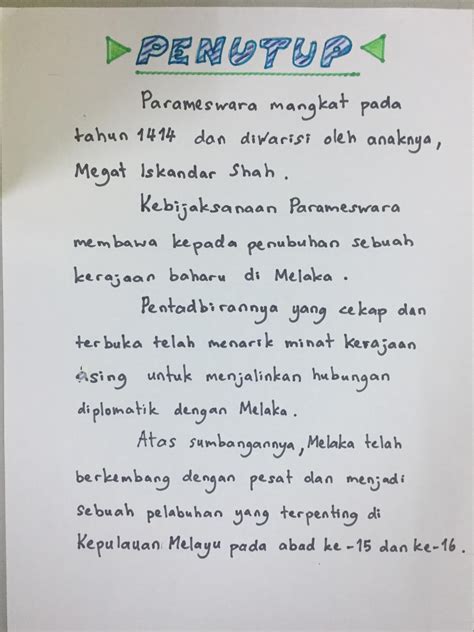 PENUTUP
Parameswara mangkat pada
tahun 1414 dan diwarisi oleh anaknya,
Megat Iskandar Shah.
Kebijaksanaan Parameswara
membawa kepada penubuhan sebuah
kerajaan baharu di Melaka.
Pentadbirannya yang cekap dan
terbuka telah menarik minat kerajaan
asing untuk menjalinkan hubungan
diplomatik dengan Melaka.
Atas sumbangannya, Melaka telah
berkembang dengan pesat dan menjadi
sebuah pelabuhan yang terpenting di
Kepulauan Melayu pada abad ke-15 dan ke-16.